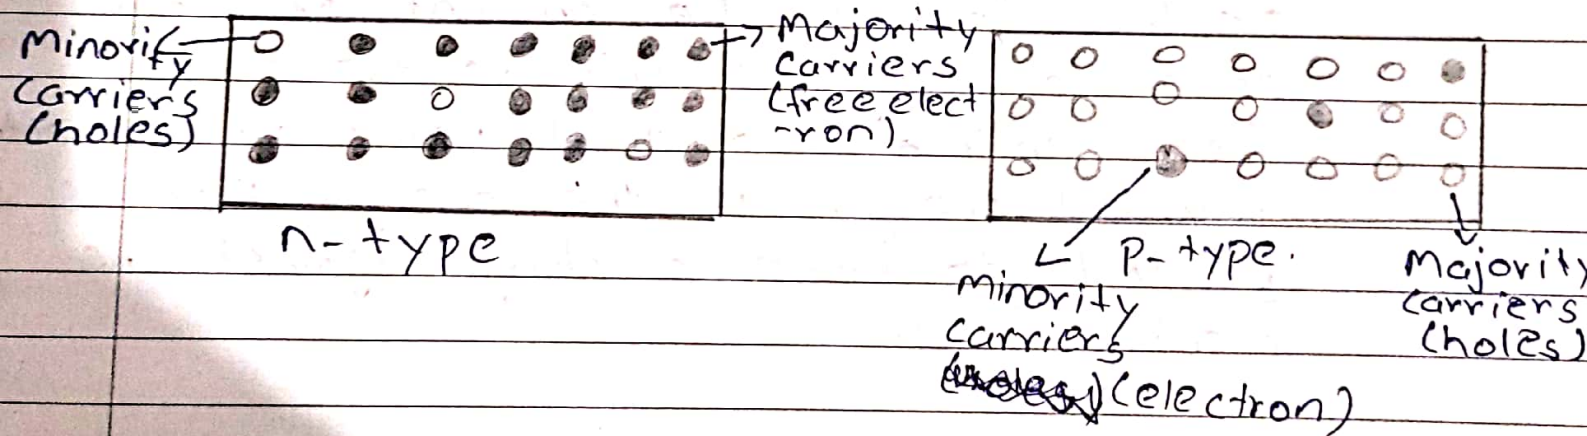 Minority
carriers
(holes)
Majority
carriers
(free elect
-ron)
n-type
p-type.
Minority
carriers
(electron)
Majority
carriers
(holes)